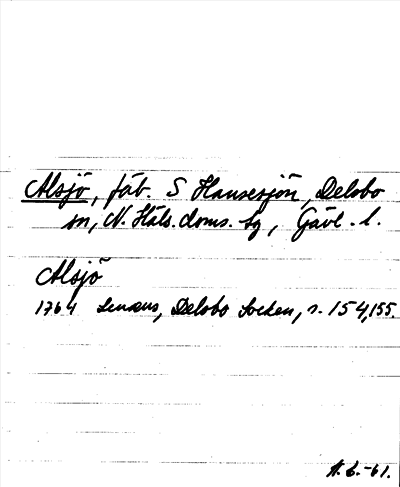 Alsjö, fäb. S Hansesjön, Delsbo
sn, N. Häls. doms. sg, Gävl. l.
Alsjö
1764 Lenæus, Delsbo Socken, s. 154, 155.
A.L.-61.